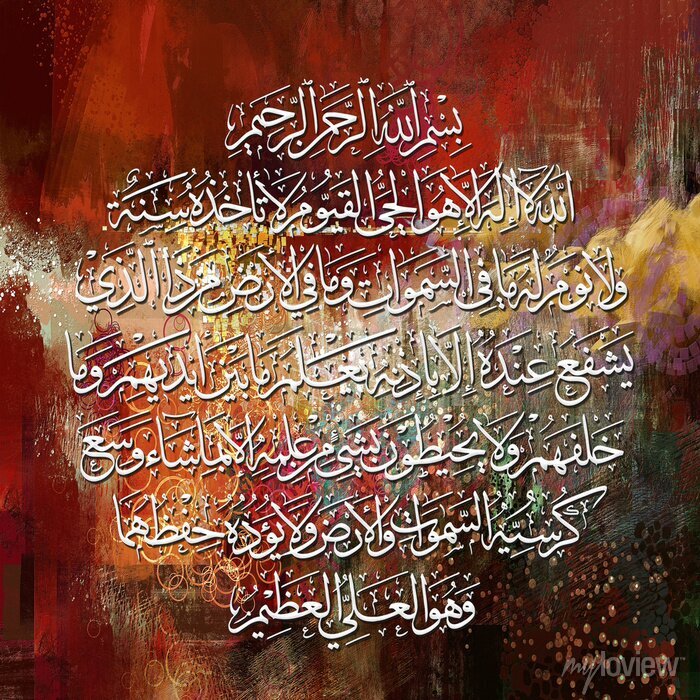 بِسْمِ اللّٰهِ الرَّحْمٰنِ الرَّحِيْمِ
اَللّٰهُ لَا اِلٰهَ اِلَّا هُوَ الْحَيُّ الْقَيُّوْمُ لَا تَأْخُذُهُ سِنَةٌ
وَلَا نَوْمٌ لَهُ مَا فِي السَّمٰوَاتِ وَمَا فِي الْاَرْضِ مَنْ ذَا الَّذِيْ
يَشْفَعُ عِنْدَهُ اِلَّا بِاِذْنِهِ يَعْلَمُ مَا بَيْنَ اَيْدِيْهِمْ وَمَا
خَلْفَهُمْ وَلَا يُحِيْطُوْنَ بِشَيْءٍ مِنْ عِلْمِهِ اِلَّا بِمَا شَاءَ وَسِعَ
كُرْسِيُّهُ السَّمٰوَاتِ وَالْاَرْضَ وَلَا يَؤُدُهُ حِفْظُهُمَا
وَهُوَ الْعَلِيُّ الْعَظِيْمُ
myloview